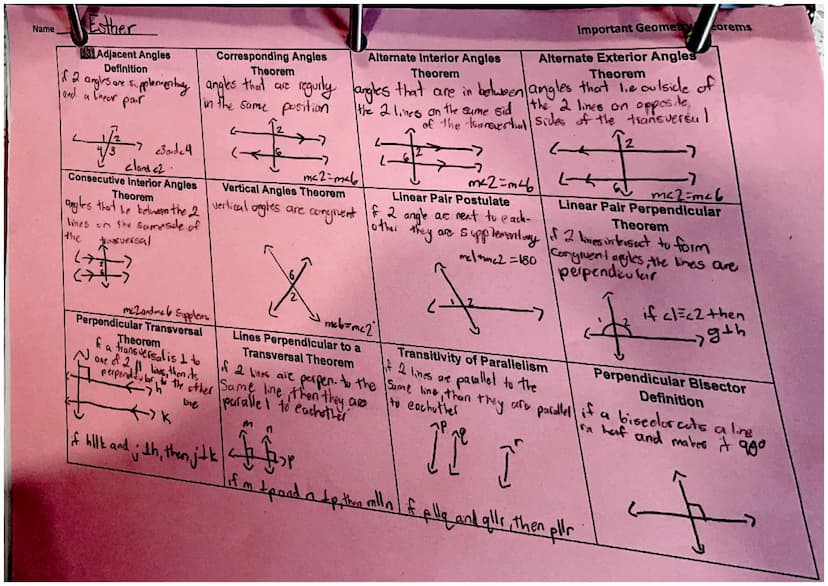 Name Esther
Important Geometry Theorems
Adjacent Angles
Definition
if 2 angles are supplementary
and a linear pair
1 2
4 3
<3 and <4
<1 and <2
Corresponding Angles
Theorem
angles that are
in the same position
2
6
m<2=m<6
Alternate Interior Angles
Theorem
angles that are in between
the 2 lines on the same sid
of the transversal
2
6
m<2=m<6
Alternate Exterior Angles
Theorem
angles that lie outside of
the 2 lines on opposite
sides of the transversal
2
6
m<2=m<6
Consecutive Interior Angles
Theorem
angles that lie between the 2
lines on the same side of
the transversal
m<2 and m<6 Supplem
Vertical Angles Theorem
vertical angles are congruent
6
2
m<6=m<2
Linear Pair Postulate
if 2 angle are next to each-
other they are supplementary
m<1+m<2=180
1 2
Linear Pair Perpendicular
Theorem
if 2 lines intersect to form
congruent angles, the lines are
perpendicular
if <1≅<2 then
g⊥h
Perpendicular Transversal
Theorem
if a transversal is ⊥ to
one of 2 || lines, then its
perpendicular to the other
one
j
h
k
if h||k and j⊥h, then j⊥k
Lines Perpendicular to a
Transversal Theorem
if 2 lines are perpen. to the
same line, then they are
parallel to eachother
m n
p
if m⊥p and n⊥p, then m||n
Transitivity of Parallelism
if 2 lines are parallel to the
same line, than they are parallel
to eachother
p q r
if p||q and q||r, then p||r
Perpendicular Bisector
Definition
if a bisector cuts a line
in haf and makes it 90°